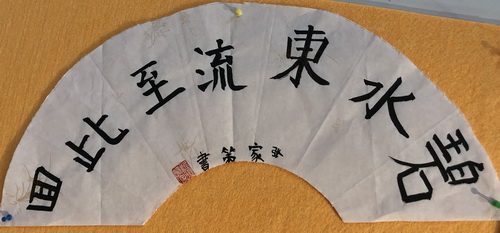 碧水東流至此回
张家第書